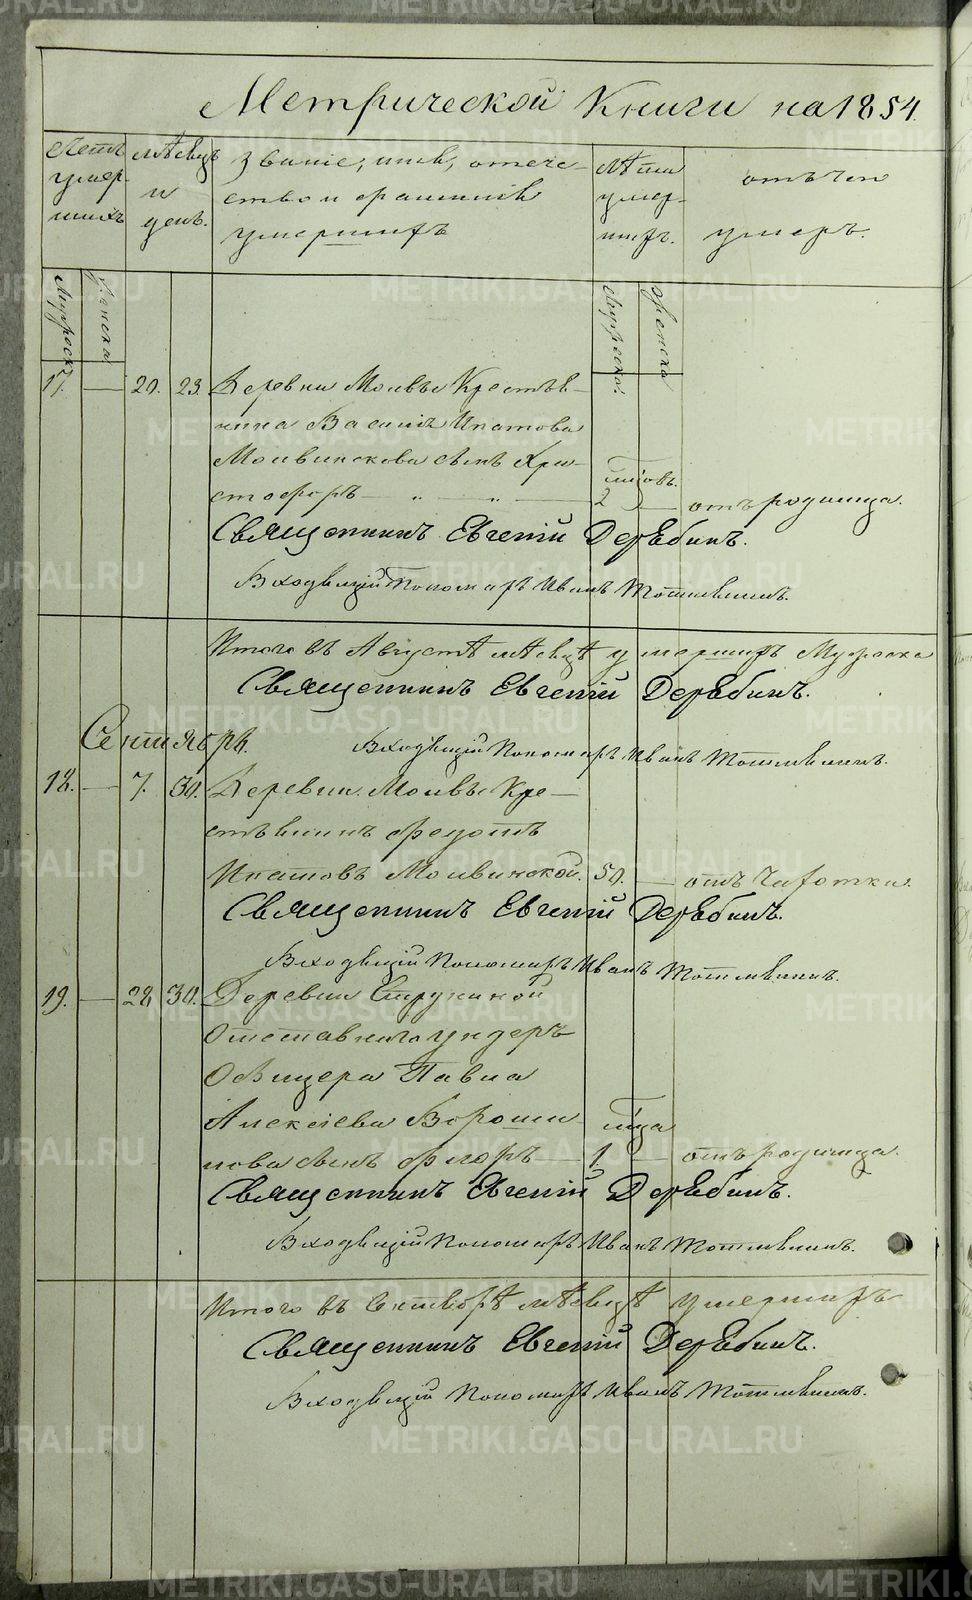 Метрической Книги на 1854.
Летъ умер-шихъ
мѣсяцъ и день.
званіе, имя, отече-
ство и фамилія
умершихъ
Лѣта умер-шихъ.
отъ чего
умеръ.
Мужеска
Женска
Мужеска.
Женска
17. — 20. 23. Деревни Молвы Крестья-
нина Василія Ипатова
Молвинскова сынъ Хри-
стофоръ — „ — „ — 2 — отъ родимца.
Священникъ Евгеній Дерябинъ.
Входящій Пономарь Иванъ
Итого въ Августѣ мѣсяцѣ умершихъ Мужеска
Священникъ Евгеній Дерябинъ.
Сентябрь.
Входящій Пономарь Иванъ
18. — 7. 30. Деревни Молвы Кре-
стьянинъ Федотъ
Ипатовъ Молвинской. 50. — отъ Чахотки.
Священникъ Евгеній Дерябинъ.
Входящій Пономарь Иванъ
19. — 28 30. Деревни
Отставнаго ундеръ
Офицера Павла
Алексѣева Вороши-
лова сынъ Флоръ — 1. — отъ родимца.
Священникъ Евгеній Дерябинъ.
Входящій Пономарь Иванъ
Итого въ Сентябрѣ мѣсяцѣ умершихъ
Священникъ Евгеній Дерябинъ.
Входящій Пономарь Иванъ
METRIKI.GASO-URAL.RU